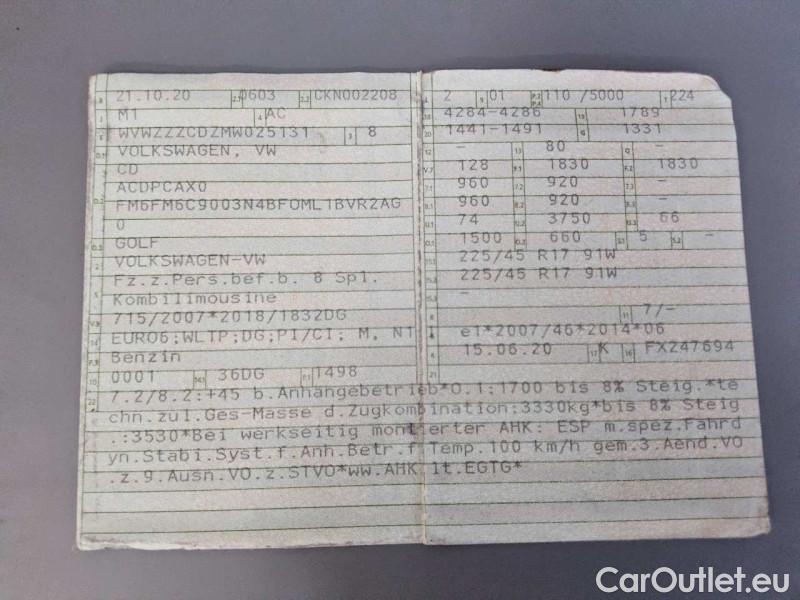 B 21.10.20 2.1 0603 2.2 CKN002208
J M1 4 AC
E WVWZZZCDZMW025131 3 8
D.1 VOLKSWAGEN, VW
CD
ACDPCAX0
D.2 FM6FM6C9003N4BFOML1BVR2AG
0
D.3 GOLF
2 VOLKSWAGEN-VW
Fz.z.Pers.bef.b. 8 Spl.
5 Kombilimousine
V.9 715/2007*2018/1832DG
14 EURO6;WLTP;DG;PI/CI; M, N1 I
P.3 Benzin
10 0001 14.1 36DG P.1 1498
L 2 9 01 P.2 P.4 110 /5000 T 224
18 4284-4286 19 1789
20 1441-1491 G 1331
12 - 13 80 Q -
V.7 128 F.1 1830 F.2 1830
7.1 960 7.2 920 7.3 -
8.1 960 8.2 920 8.3 -
U.1 74 U.2 3750 U.3 66
O.1 1500 O.2 660 S.1 5 S.2 -
15.1 225/45 R17 91W
15.2 225/45 R17 91W
15.3 -
R 11 7/-
K e1*2007/46*2014*06
6 15.06.20 17 K 16 FX247694
21
22 7.2/8.2:+45 b.Anhängebetrieb*O.1:1700 bis 8% Steig.*te
chn.zul.Ges-Masse d.Zugkombination:3330kg*bis 8% Steig
.:3530*Bei werkseitig montierter AHK: ESP m.spez.Fahrd
yn.Stabi.Syst.f.Anh.Betr.f.Temp.100 km/h gem.3.Aend.VO
.z.9.Ausn.VO.z.STVO*ww.AHK lt.EGTG*
CarOutlet.eu